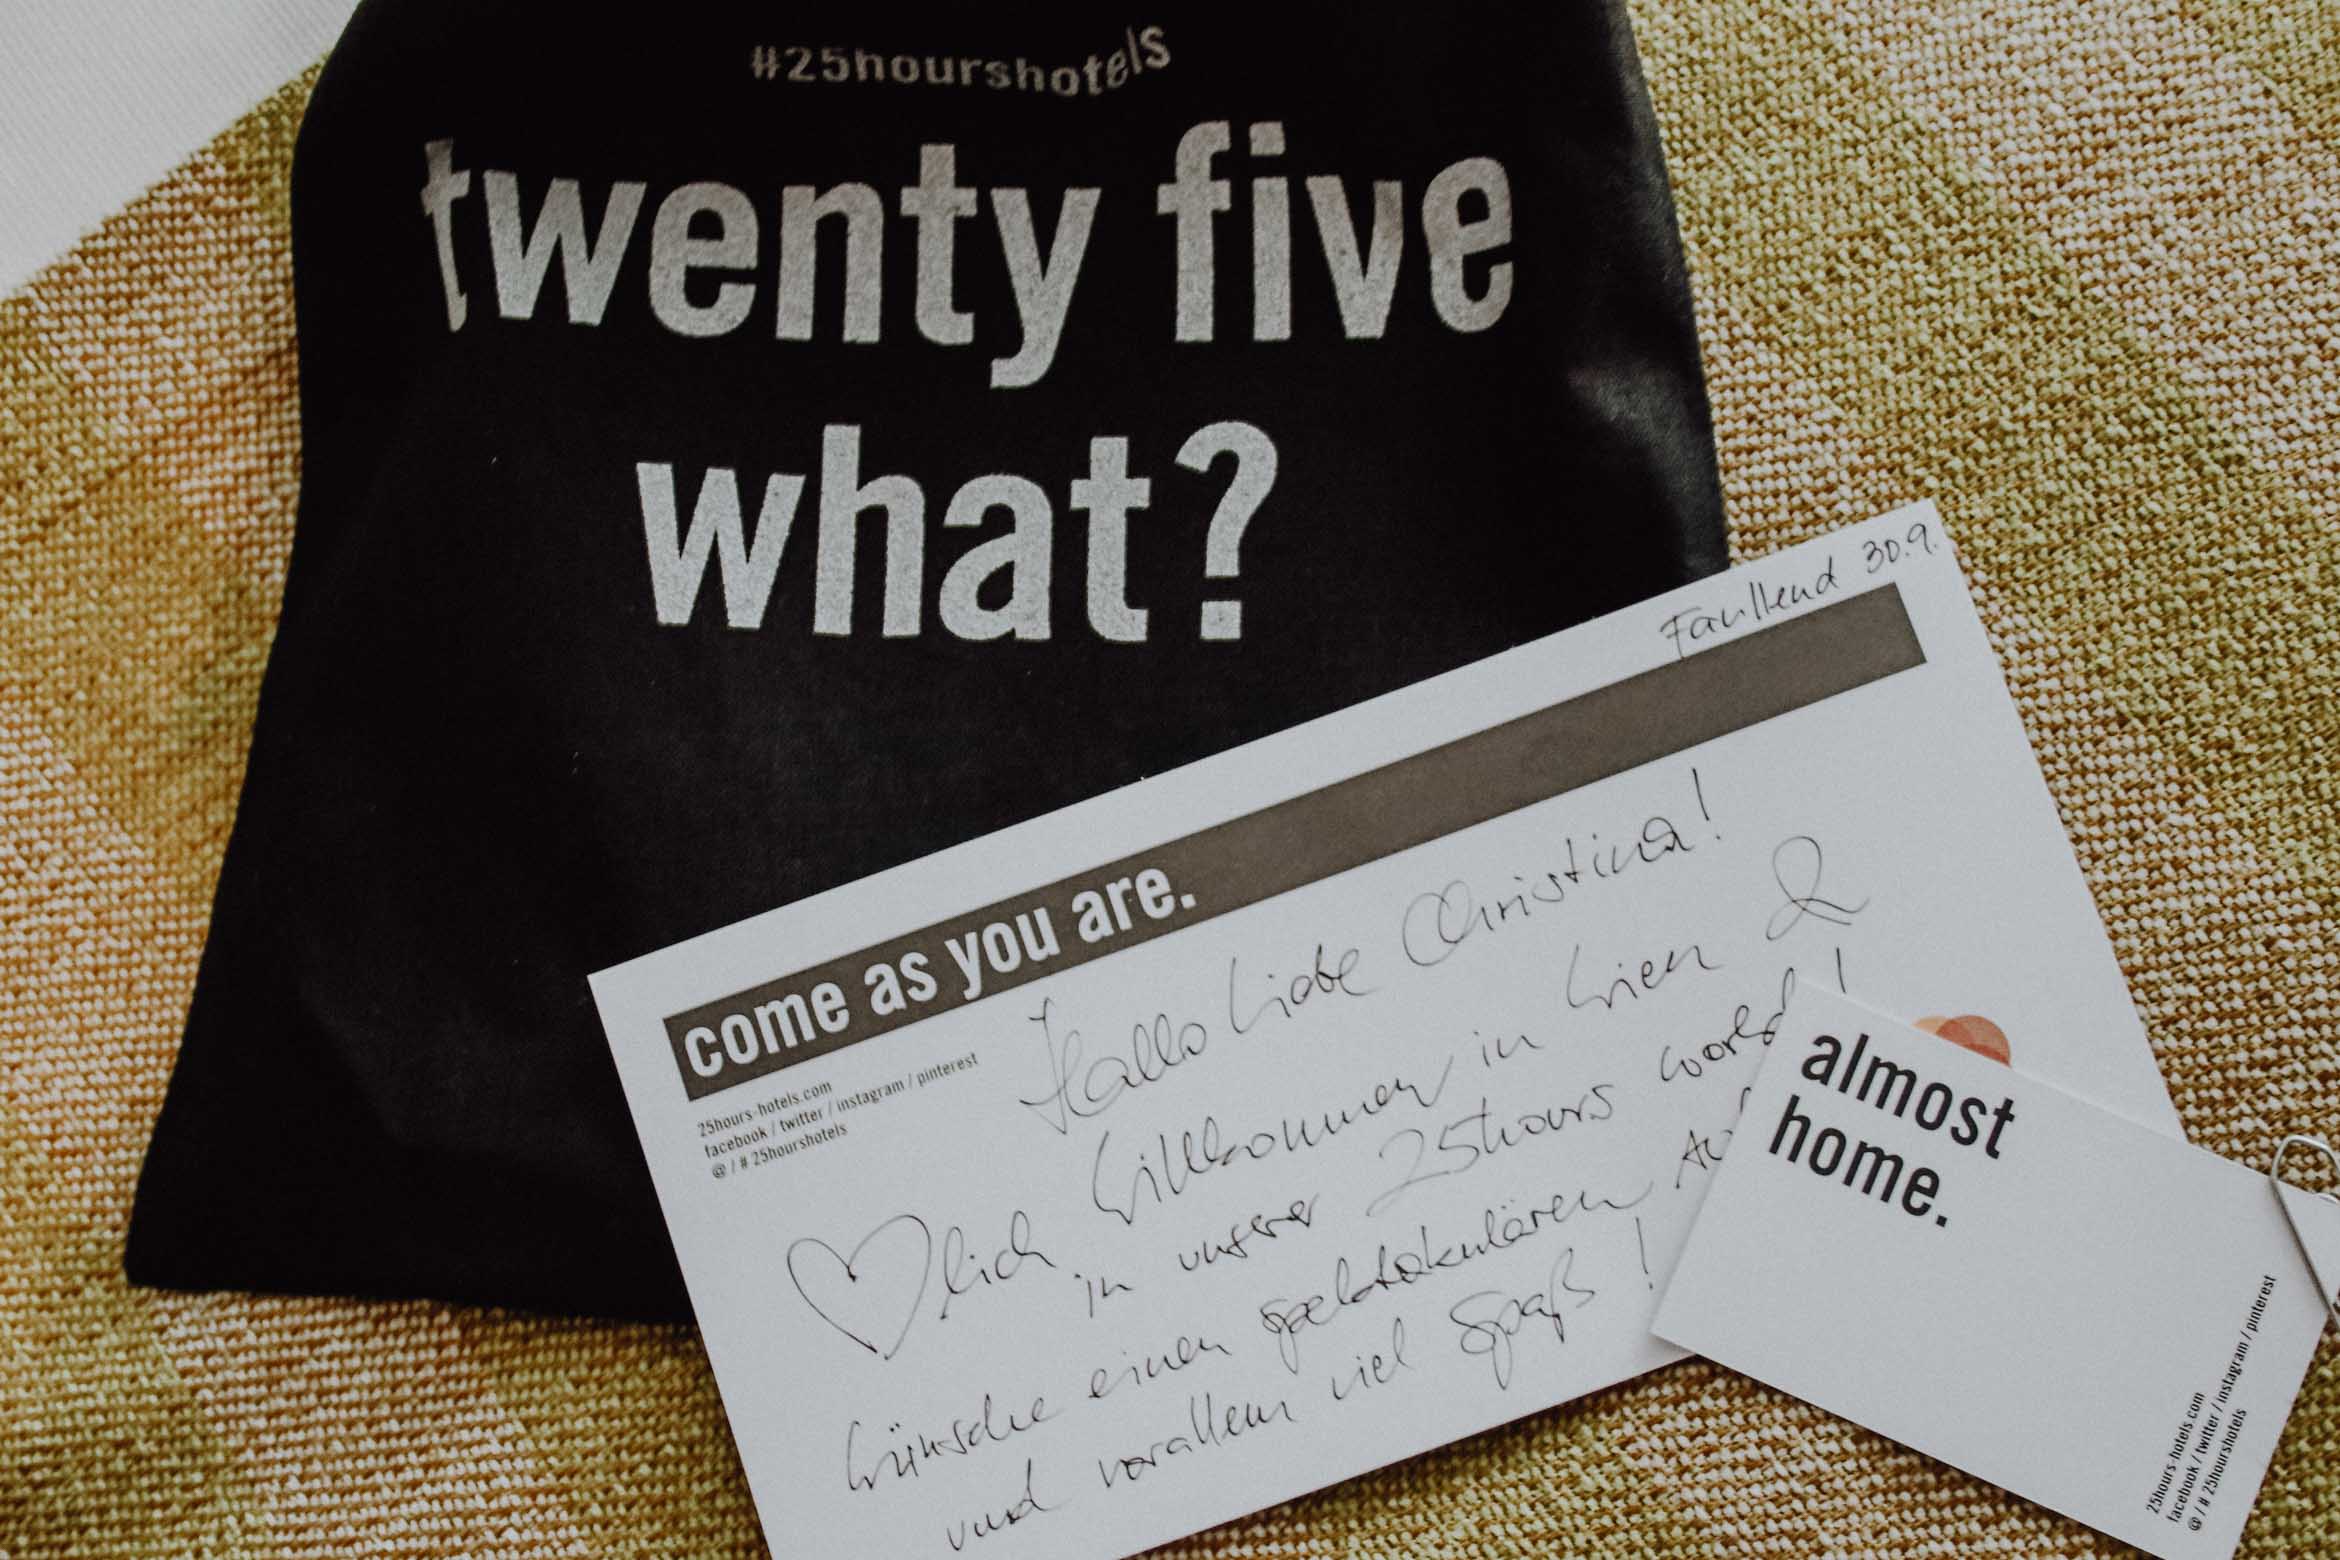 #25hourshotels
twenty five
what?
Faullend 30.9.
come as you are.
25hours-hotels.com
facebook / twitter / instagram / pinterest
@ / # 25hourshotels
Hallo Liebe Christina!
♡lich Willkommen in Wien &
in unserer 25hours world!
Wünsche einen spektakulären
und vorallem viel Spaß!
almost
home.
25hours-hotels.com
facebook / twitter / instagram / pinterest
@ / # 25hourshotels